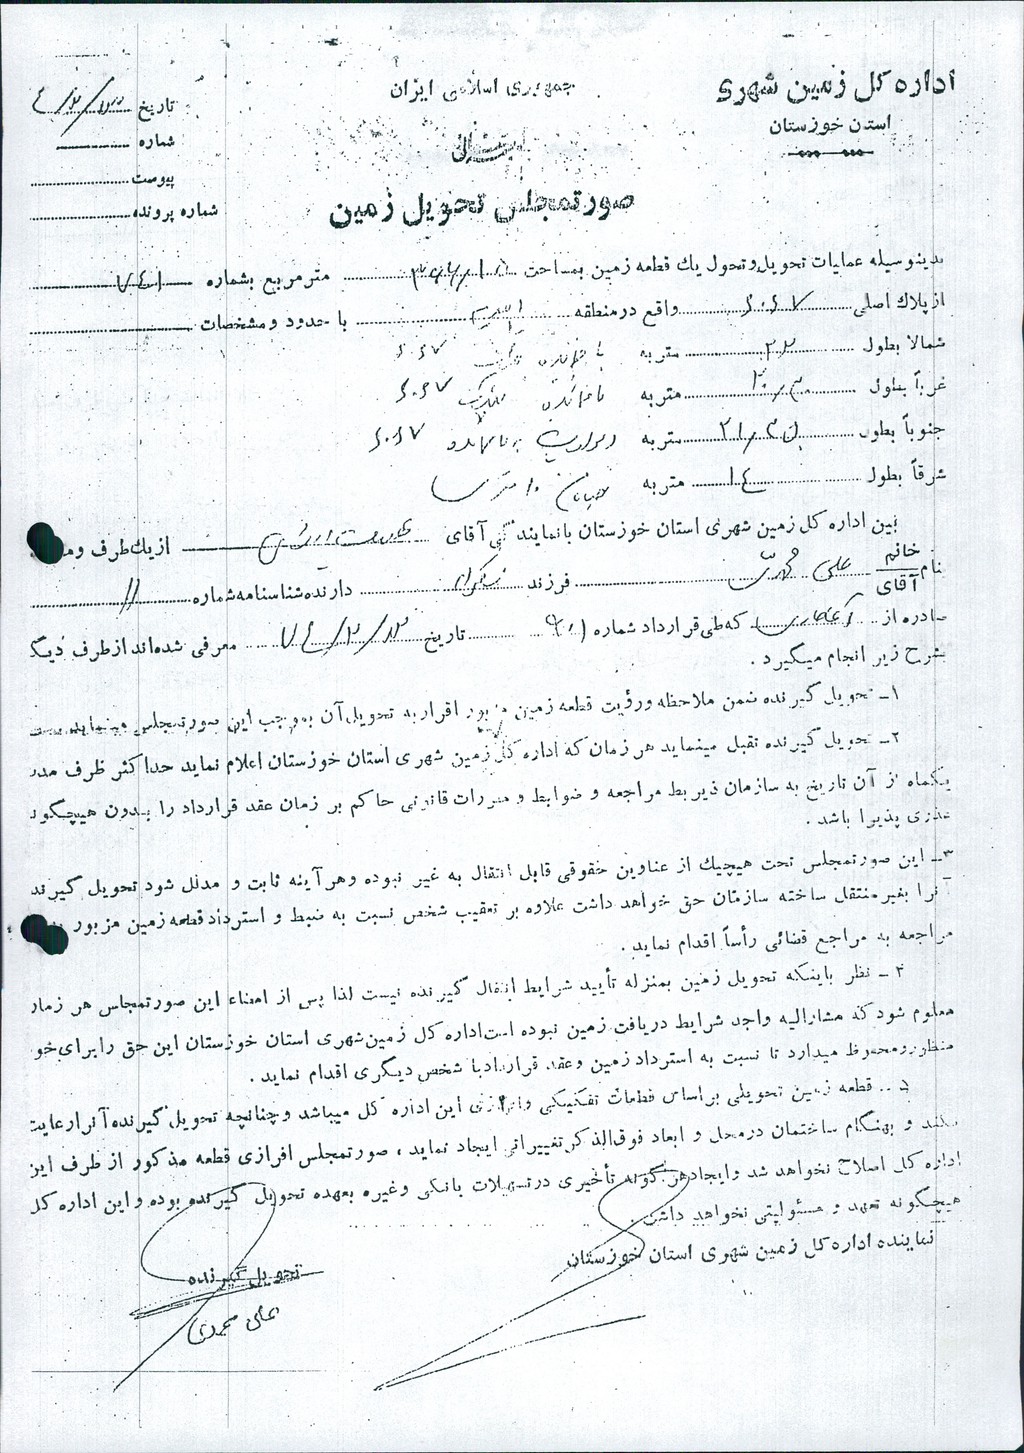 اداره کل زمین شهری
استان خوزستان
جمهوری اسلامی ایران
تاریخ
شماره
پیوست
شماره پرونده
صورتمجلس تحویل زمین
بدینوسیله عملیات تحویل و تحول یک قطعه زمین بمساحت مترمربع بشماره ۷۴۱
از پلاک اصلی واقع در منطقه با حدود و مشخصات
شمالا بطول ۲۲ متر به باقیمانده
غرباً بطول متر به باقیمانده
جنوباً بطول متر به باقیمانده
شرقاً بطول ۱۴ متر به خیابان ۱۰ متری
بین اداره کل زمین شهری استان خوزستان با نمایندگی آقای از یک طرف و
نام خانم آقای علی محمدی فرزند دارنده شناسنامه شماره ۱۱
صادره از که طی قرارداد شماره تاریخ معرفی شده‌اند از طرف دیگ
بشرح زیر انجام میگیرد .
۱ـ تحویل گیرنده ضمن ملاحظه و رؤیت قطعه زمین مزبور اقرار به تحویل آن بموجب این صورتمجلس مینماید
۲ـ تحویل گیرنده تقبل مینماید هر زمان که اداره کل زمین شهری استان خوزستان اعلام نماید حداکثر ظرف مد
یکماه از آن تاریخ به سازمان ذیربط مراجعه و ضوابط و مقررات قانونی حاکم بر زمان عقد قرارداد را بدون هیچگون
عذری پذیرا باشد .
۳ـ این صورتمجلس تحت هیچیک از عناوین حقوقی قابل انتقال به غیر نبوده و هرآینه ثابت و مدلل شود تحویل گیرند
آنرا بغیر منتقل ساخته سازمان حق خواهد داشت علاوه بر تعقیب شخص نسبت به ضبط و استرداد قطعه زمین مزبور
مراجعه به مراجع قضائی رأساً اقدام نماید .
۴ـ نظر باینکه تحویل زمین بمنزله تأیید شرایط انتقال گیرنده نیست لذا پس از امضاء این صورتمجلس هر زمان
معلوم شود که مشارالیه واجد شرایط دریافت زمین نبوده است اداره کل زمین شهری استان خوزستان این حق را برای خو
منظور و محفوظ میدارد تا نسبت به استرداد زمین و عقد قرارداد با شخص دیگری اقدام نماید .
۵ـ قطعه زمین تحویلی براساس قطعات تفکیکی واگذاری این اداره کل میباشد و چنانچه تحویل گیرنده آنرا رعایت
نکند و بهنگام ساختمان در محل و ابعاد فوق‌الذکر تغییراتی ایجاد نماید ، صورتمجلس افرازی قطعه مذکور از طرف این
اداره کل اصلاح نخواهد شد و ایجاد هرگونه تأخیری در تسهیلات بانکی و غیره بعهده تحویل گیرنده بوده و این اداره کل
هیچگونه تعهد و مسئولیتی نخواهد داشت .
نماینده اداره کل زمین شهری استان خوزستان
تحویل گیرنده
علی محمدی